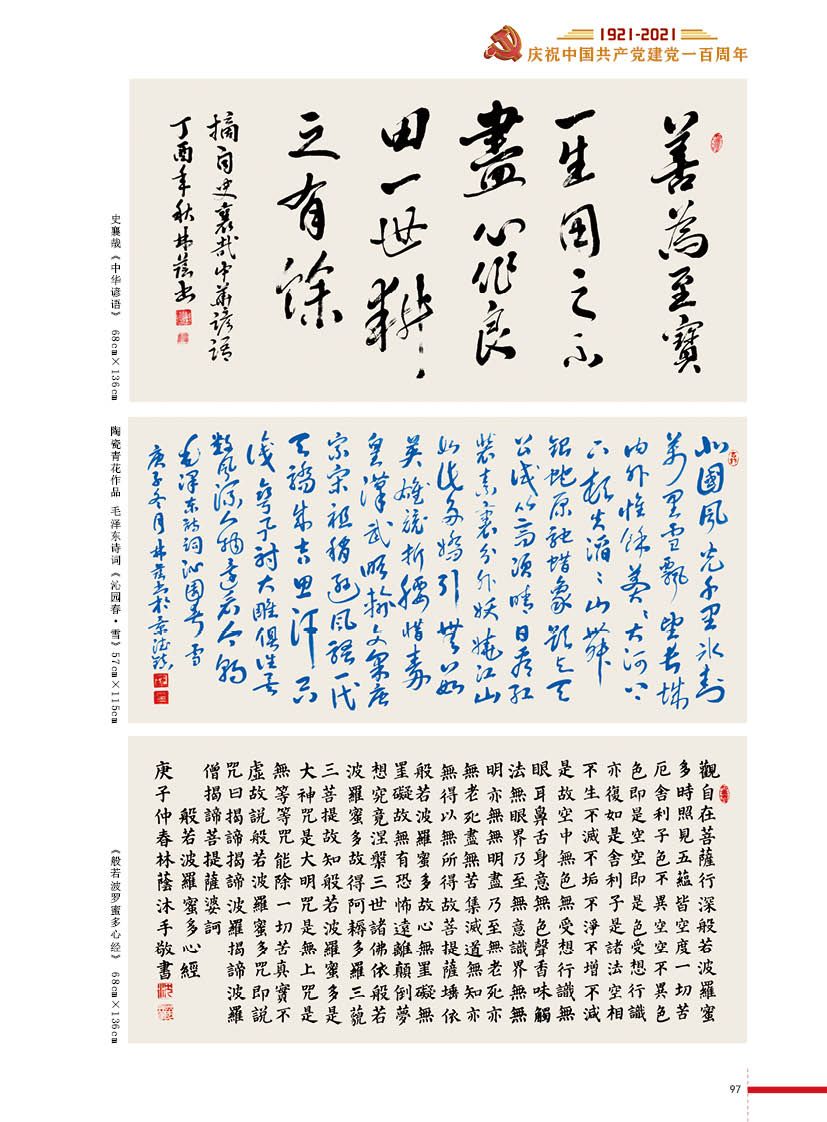 1921-2021
庆祝中国共产党建党一百周年
善為至寶
一生用之不
盡心作良
田一世耕
之有餘
摘句史襄哉中華諺語
丁酉年秋林蔭书
史襄哉《中华谚语》 68cm×136cm
北國風光千里冰封
萬里雪飄望長城
内外惟餘莽〻大河上
下頓失滔〻山舞
銀蛇原馳蜡象欲与天
公试比高須晴日看红
裝素裹分外妖娆江山
如此多嬌引無数
英雄競折腰惜秦
皇漢武略输文采唐
宗宋祖稍逊風騷一代
天驕成吉思汗只
識彎弓射大雕俱往矣
数風流人物還看今朝
毛澤东詩詞沁園春雪
庚子冬月林蔭书於景德鎮
陶瓷青花作品 毛泽东诗词《沁园春·雪》57cm×115cm
觀自在菩薩行深般若波羅蜜
多時照見五蘊皆空度一切苦
厄舍利子色不異空空不異色
色即是空空即是色受想行識
亦復如是舍利子是諸法空相
不生不滅不垢不淨不增不減
是故空中無色無受想行識無
眼耳鼻舌身意無色聲香味觸
法無眼界乃至無意識界無無
明亦無無明盡乃至無老死亦
無老死盡無苦集滅道無知亦
無得以無所得故菩提薩埵依
般若波羅蜜多故心無罣礙無
罣礙故無有恐怖遠離顛倒夢
想究竟涅槃三世諸佛依般若
波羅蜜多故得阿耨多羅三藐
三菩提故知般若波羅蜜多是
大神咒是大明咒是無上咒是
無等等咒能除一切苦真實不
虛故說般若波羅蜜多咒即說
咒曰揭諦揭諦波羅揭諦波羅
僧揭諦菩提薩婆訶
般若波羅蜜多心經
庚子仲春林蔭沐手敬書
《般若波罗蜜多心经》 68cm×136cm
97